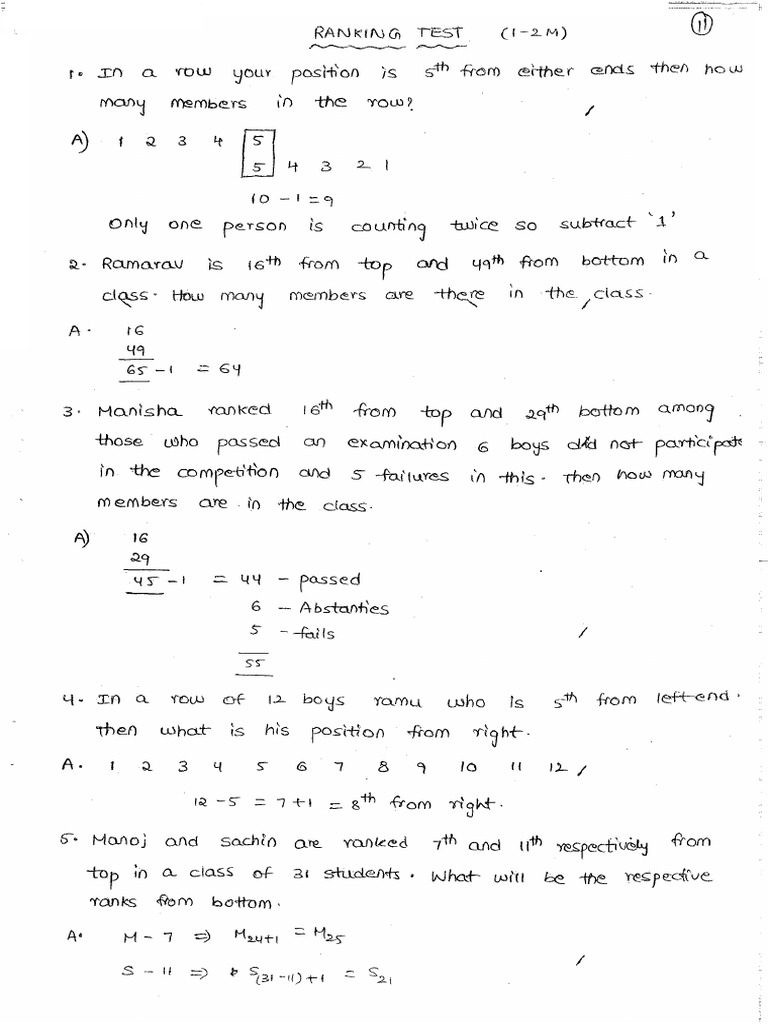 RANKING TEST (1-2M)
11
1. In a row your position is 5th from either ends then how
many members in the row?
A) 1 2 3 4 5
5 4 3 2 1
10 - 1 = 9
Only one person is counting twice so subtract '1'
2. Ramarav is 16th from top and 49th from bottom in a
class. How many members are there in the class.
A. 16
49
65 - 1 = 64
3. Manisha ranked 16th from top and 29th bottom among
those who passed an examination 6 boys did not participate
in the competition and 5 failures in this. Then how many
members are in the class.
A) 16
29
45 - 1 = 44 - passed
6 - Abstanties
5 - fails
55
4. In a row of 12 boys ramu who is 5th from left end.
then what is his position from right.
A. 1 2 3 4 5 6 7 8 9 10 11 12
12 - 5 = 7 + 1 = 8th from right.
5. Manoj and sachin are ranked 7th and 11th respectively from
top in a class of 31 students. What will be the respective
ranks from bottom.
A. M - 7 ⇒ M24+1 = M25
S - 11 ⇒ S(31-11)+1 = S21